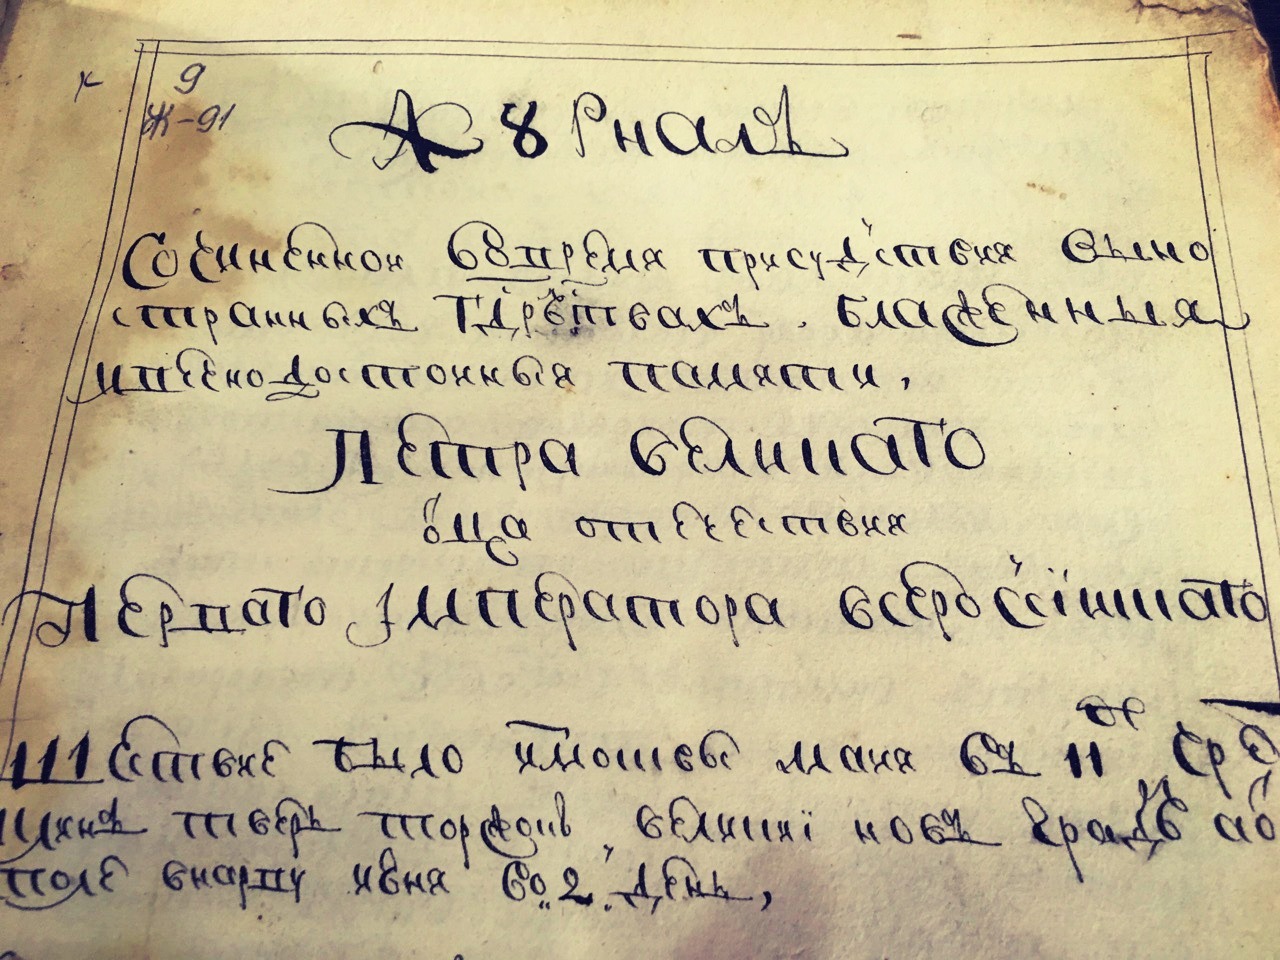 9
Ж-91
Жȣрналъ
Сочиненной во время присудствия выно
странныхъ Гдрствахъ. блаженныя
ипѣснодостойныя памяти,
Петра великаго
ѡца отечествия
Первого Императора всеросиїискаго
Шествие было измосквы маия въ 11 де
тверь торжокъ, великиї новъ градъ
поле внарву июня во 2. день,